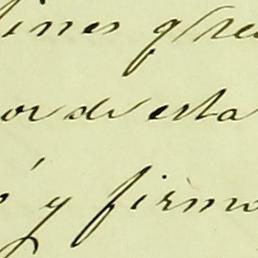 ines q
or de esta
y firmo